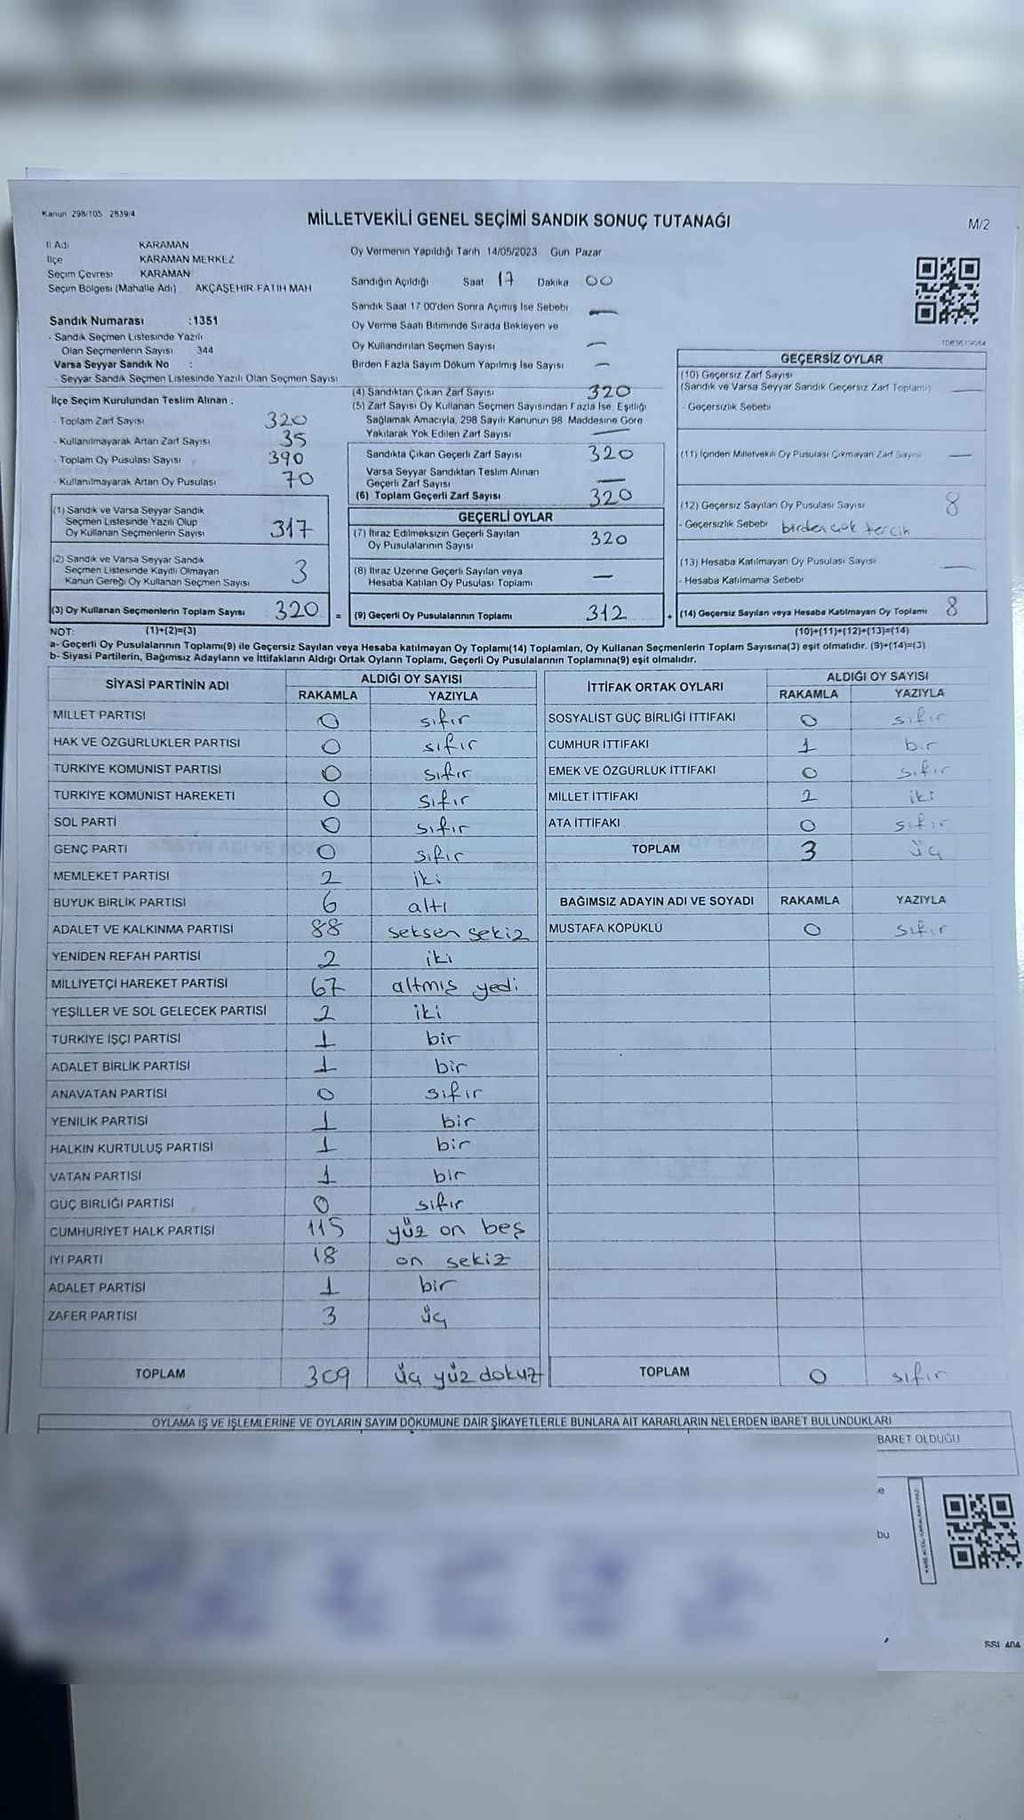 Kanun 298/105 2839/4
MİLLETVEKİLİ GENEL SEÇİMİ SANDIK SONUÇ TUTANAĞI
M/2
İl Adı KARAMAN
İlçe KARAMAN MERKEZ
Seçim Çevresi KARAMAN
Seçim Bölgesi (Mahalle Adı) AKÇAŞEHİR-FATİH MAH
Sandık Numarası :1351
- Sandık Seçmen Listesinde Yazılı
Olan Seçmenlerin Sayısı 344
Varsa Seyyar Sandık No :
- Seyyar Sandık Seçmen Listesinde Yazılı Olan Seçmen Sayısı
İlçe Seçim Kurulundan Teslim Alınan :
- Toplam Zarf Sayısı 320
- Kullanılmayarak Artan Zarf Sayısı 35
- Toplam Oy Pusulası Sayısı 390
- Kullanılmayarak Artan Oy Pusulası 70
(1) Sandık ve Varsa Seyyar Sandık
Seçmen Listesinde Yazılı Olup
Oy Kullanan Seçmenlerin Sayısı 317
(2) Sandık ve Varsa Seyyar Sandık
Seçmen Listesinde Kayıtlı Olmayan
Kanun Gereği Oy Kullanan Seçmen Sayısı 3
(3) Oy Kullanan Seçmenlerin Toplam Sayısı 320 =
Oy Vermenin Yapıldığı Tarih 14/05/2023 Gün Pazar
Sandığın Açıldığı Saat 17 Dakika 00
Sandık Saat 17.00'den Sonra Açılmış İse Sebebi —
Oy Verme Saati Bitiminde Sırada Bekleyen ve
Oy Kullandırılan Seçmen Sayısı —
Birden Fazla Sayım Döküm Yapılmış İse Sayısı —
(4) Sandıktan Çıkan Zarf Sayısı 320
(5) Zarf Sayısı Oy Kullanan Seçmen Sayısından Fazla İse, Eşitliği
Sağlamak Amacıyla, 298 Sayılı Kanunun 98. Maddesine Göre
Yakılarak Yok Edilen Zarf Sayısı —
Sandıkta Çıkan Geçerli Zarf Sayısı 320
Varsa Seyyar Sandıktan Teslim Alınan
Geçerli Zarf Sayısı —
(6) Toplam Geçerli Zarf Sayısı 320
GEÇERLİ OYLAR
(7) İtiraz Edilmeksizin Geçerli Sayılan
Oy Pusulalarının Sayısı 320
(8) İtiraz Üzerine Geçerli Sayılan veya
Hesaba Katılan Oy Pusulası Toplamı —
(9) Geçerli Oy Pusulalarının Toplamı 312 +
GEÇERSİZ OYLAR
(10) Geçersiz Zarf Sayısı
(Sandık ve Varsa Seyyar Sandık Geçersiz Zarf Toplamı) —
- Geçersizlik Sebebi
(11) İçinden Milletvekili Oy Pusulası Çıkmayan Zarf Sayısı —
(12) Geçersiz Sayılan Oy Pusulası Sayısı 8
- Geçersizlik Sebebi birden çok tercih
(13) Hesaba Katılmayan Oy Pusulası Sayısı —
- Hesaba Katılmama Sebebi
(14) Geçersiz Sayılan veya Hesaba Katılmayan Oy Toplamı 8
NOT: (1)+(2)=(3) (10)+(11)+(12)+(13)=(14)
a- Geçerli Oy Pusulalarının Toplamı(9) ile Geçersiz Sayılan veya Hesaba katılmayan Oy Toplamı(14) Toplamları, Oy Kullanan Seçmenlerin Toplam Sayısına(3) eşit olmalıdır. (9)+(14)=(3)
b- Siyasi Partilerin, Bağımsız Adayların ve İttifakların Aldığı Ortak Oyların Toplamı, Geçerli Oy Pusulalarının Toplamına(9) eşit olmalıdır.
SİYASİ PARTİNİN ADI ALDIĞI OY SAYISI
RAKAMLA YAZIYLA
MİLLET PARTİSİ 0 sıfır
HAK VE ÖZGÜRLÜKLER PARTİSİ 0 sıfır
TÜRKİYE KOMÜNİST PARTİSİ 0 sıfır
TÜRKİYE KOMÜNİST HAREKETİ 0 sıfır
SOL PARTİ 0 sıfır
GENÇ PARTİ 0 sıfır
MEMLEKET PARTİSİ 2 iki
BÜYÜK BİRLİK PARTİSİ 6 altı
ADALET VE KALKINMA PARTİSİ 88 seksen sekiz
YENİDEN REFAH PARTİSİ 2 iki
MİLLİYETÇİ HAREKET PARTİSİ 67 altmış yedi
YEŞİLLER VE SOL GELECEK PARTİSİ 2 iki
TÜRKİYE İŞÇİ PARTİSİ 1 bir
ADALET BİRLİK PARTİSİ 1 bir
ANAVATAN PARTİSİ 0 sıfır
YENİLİK PARTİSİ 1 bir
HALKIN KURTULUŞ PARTİSİ 1 bir
VATAN PARTİSİ 1 bir
GÜÇ BİRLİĞİ PARTİSİ 0 sıfır
CUMHURİYET HALK PARTİSİ 115 yüz on beş
İYİ PARTİ 18 on sekiz
ADALET PARTİSİ 1 bir
ZAFER PARTİSİ 3 üç
TOPLAM 309 üç yüz dokuz
İTTİFAK ORTAK OYLARI ALDIĞI OY SAYISI
RAKAMLA YAZIYLA
SOSYALİST GÜÇ BİRLİĞİ İTTİFAKI 0 sıfır
CUMHUR İTTİFAKI 1 bir
EMEK VE ÖZGÜRLÜK İTTİFAKI 0 sıfır
MİLLET İTTİFAKI 2 iki
ATA İTTİFAKI 0 sıfır
TOPLAM 3 üç
BAĞIMSIZ ADAYIN ADI VE SOYADI RAKAMLA YAZIYLA
MUSTAFA KÖPÜKLÜ 0 sıfır
TOPLAM 0 sıfır
OYLAMA İŞ VE İŞLEMLERİNE VE OYLARIN SAYIM DÖKÜMÜNE DAİR ŞİKAYETLERLE BUNLARA AİT KARARLARIN NELERDEN İBARET BULUNDUKLARI
BARET OLDUĞU
bu